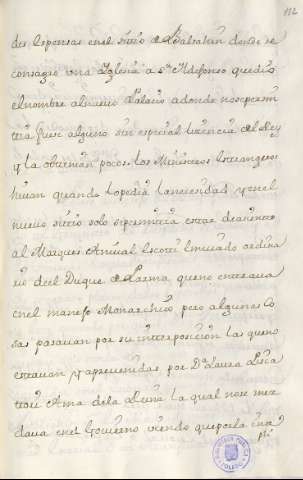 112
des espensas en el sitio de Balsahin donde se
consagro una Yglesia a Sn. Ildefonso que dio
el nombre al nuevo Palacio adonde no se permi
tia fuese alguno sin especial licencia del Rey
y la obtenian pocos. los Ministros Estrangeros
hivan quando lo pedia la necesidad y en el
nuevo sitio solo se permitia estar de asiento
al Marques Annibal Scotti Embiado ordina
rio del Duque de Parma, que no entrava
en el manejo Monarchico pero algunas co
sas pasavan por su interposicion las que no
estavan ya prevenidas por Da. Laura Pisca
tori Ama de la Reina la qual no se mez
clava en el Govierno viendo que por la